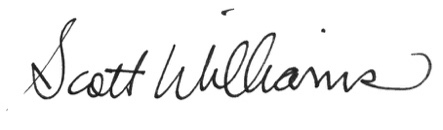 Scott Williams